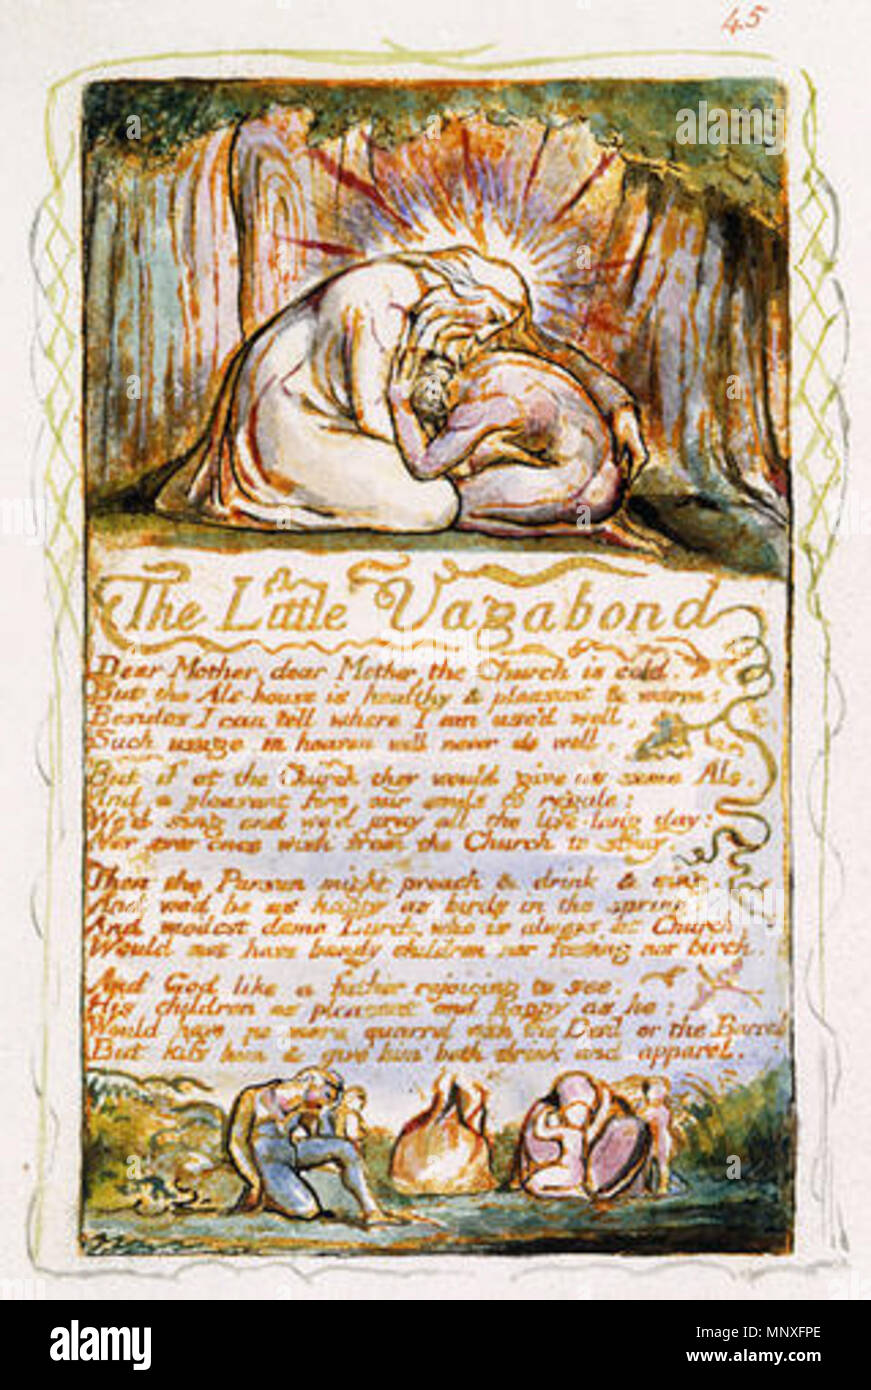 45
The Little Vagabond
Dear Mother, dear Mother, the Church is cold.
But the Ale-house is healthy & pleasant & warm:
Besides I can tell where I am use'd well,
Such usage in heaven will never do well.
But if at the Church they would give us some Ale.
And a pleasant fire, our souls to regale:
We'd sing and we'd pray all the live-long day:
Nor ever once wish from the Church to stray.
Then the Parson might preach & drink & sing.
And we'd be as happy as birds in the spring:
And modest dame Lurch, who is always at Church,
Would not have bandy children nor fasting nor birch.
And God like a father rejoicing to see.
His children as pleasant and happy as he:
Would have no more quarrel with the Devil or the Barrel
But kiss him & give him both drink and apparel.
alamy
alamy
alamy
a
alamy
Image ID: MNXFPE
www.alamy.com